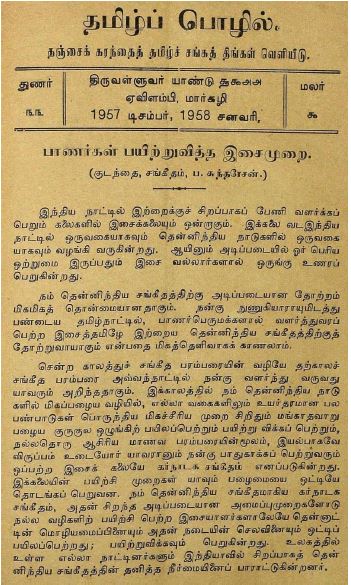 தமிழ்ப் பொழில்.
தஞ்சைக் கரந்தைத் தமிழ்ச் சங்கத் திங்கள் வெளியீடு.
துணர்
ந.ந.
திருவள்ளுவர் யாண்டு தகூஅஅ
ஏவிளம்பி, மார்கழி
1957 டிசம்பர், 1958 சனவரி,
மலர்
கூ
பாணர்கள் பயிற்றுவித்த இசைமுறை.
(குடந்தை, சங்கீதம், ப. சுந்தரேசன்.)
இந்திய நாட்டில் இற்றைக்குச் சிறப்பாகப் பேணி வளர்க்கப்
பெறும் கலைகளில் இசைக்கலையும் ஒன்றாகும். இக்கலை வடஇந்திய
நாட்டில் ஒருவகையாகவும் தென்னிந்திய நாடுகளில் ஒருவகை
யாகவும் வழங்கி வருகின்றது. ஆயினும் அடிப்படையில் ஓர் பெரிய
ஒற்றுமை இருப்பதும் இசை வல்லார்களால் ஒருங்கு உணரப்
பெறுகின்றது.
நம் தென்னிந்திய சங்கீதத்திற்கு அடிப்படையான தோற்றம்
மிகமிகத் தொன்மையானதாகும். நன்கு நுணுகியாராயுமிடத்து
பண்டைய தமிழ்நாட்டில், பாணர்பெருமக்களால் வளர்த்துவரப்
பெற்ற இசைத்தமிழே இற்றைய தென்னிந்திய சங்கீதத்திற்குத்
தோற்றுவாயாகும் என்பதை மிகத்தெளிவாகக் காணலாம்.
சென்ற காலத்துச் சங்கீத பரம்பரையின் வழியே தற்காலச்
சங்கீத பரம்பரை அவ்வந்நாட்டில் நன்கு வளர்ந்து வருவது
யாவரும் அறிந்ததாகும். இக்காலத்தில் நம் தென்னிந்திய நாடு
களில் மிகப்பழைய வழியில், எல்லா வகைகளிலும் உயர்தரமான பல
பண்பாடுகள் பொருந்திய மிகச்சீரிய முறை சிறிதும் மங்காதவாறு
பழைய குருகுல ஒழுங்கிற் பயிலப்பெற்றும் பயிற்று விக்கப் பெற்றும்,
நல்லதொரு ஆசிரிய மாணவ பரம்பரையின்மூலம், இயல்பாகவே
விருப்பம் உடையோர் யாவரானும் நன்கு பாதுகாக்கப் பெற்றுவரும்
ஒப்பற்ற இசைக் கலையே கர்நாடக சங்கீதம் எனப்படுகின்றது.
இக்கலையின் பயிற்சி முறைகள் யாவும் பழைமையை ஒட்டியே
தொடங்கப் பெறுவன. நம் தென்னிந்திய சங்கீதமாகிய கர்நாடக
சங்கீதம், அதன் சிறந்த அடிப்படையான அமைப்புமுறைகளோடு
நல்ல வழிகளிற் பயிற்சி பெற்ற இசையாளர்களாலேயே தென்னாட்
டின் மொழியமைப்பினையும் அதன் நடையின் செலவினையும் ஒட்டிப்
பயிலப்பெற்றது; பயிற்றுவிக்கவும் பெறுகின்றது. உலகத்தில்
உள்ள எல்லா நாட்டினர்களும் இந்தியாவில் சிறப்பாகத் தென்
னிந்திய சங்கீதத்தின் தனித்த நீர்மையினைப் பாராட்டுகின்றனர்.